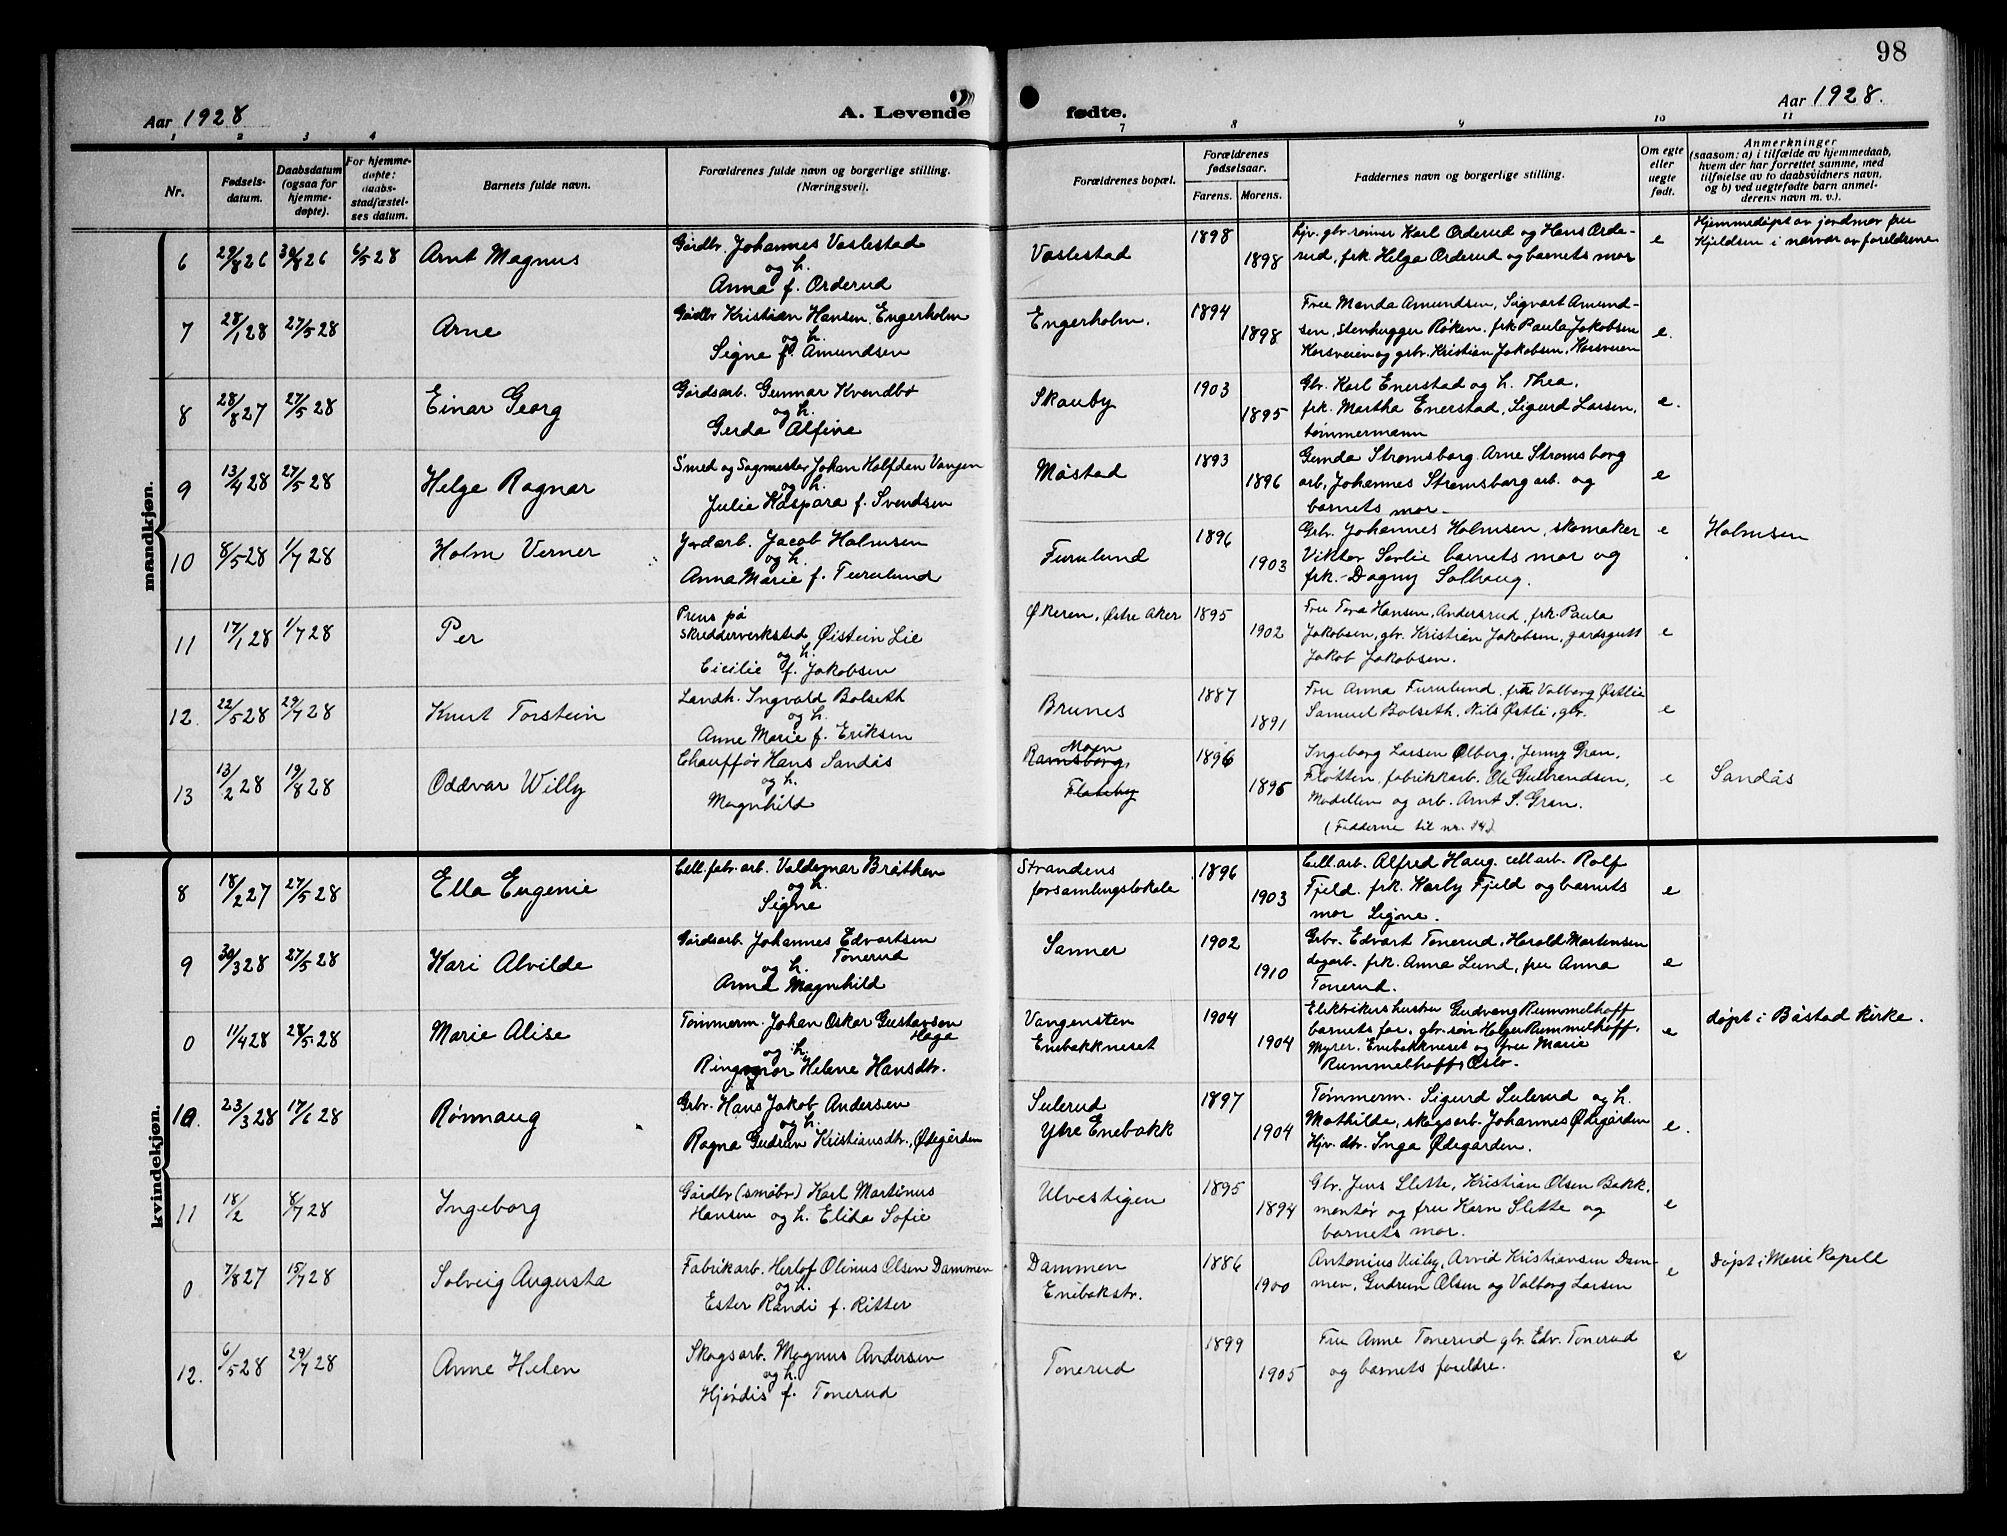 98
Aar 1928
A. Levende
fødte.
Aar 1928.
1 2 3 4 7 8 9 10 11
Nr.
Fødsels-
datum.
Daabsdatum
(ogsaa for
hjemme-
døpte).
For hjemme-
døpte:
daabs-
stadfæstel-
ses datum.
Barnets fulde navn.
Forældrenes fulde navn og borgerlige stilling.
(Næringsvei).
Forældrenes bopæl.
Forældrenes
fødselsaar.
Farens. Morens.
Faddernes navn og borgerlige stilling.
Om egte
eller
uegte
født.
Anmerkninger
(saasom: a) i tilfælde av hjemmedaab,
hvem der har forrettet samme, med
tilføielse av to daabsvidners navn,
og b) ved uegtefødte barn anmel-
derens navn m. v.).
mandkjøn.
6 29/8 26 30/8 26 6/5 28 Arnt Magnus
Gårdbr. Johannes Vaslestad
og h.
Anna f. Orderud
Vaslestad
1898
1898
Hjv. gbr. sønner Karl Orderud og Hans Orde-
rud, frk Helga Orderud og barnets mor
e
Hjemmedøpt av jordmor fru
Kjeldsen i nærvær av foreldrene
7 28/1 28 27/5 28 Arne
Gårdbr Kristian Hansen, Engerholm
og h.
Signe f. Amundsen
Engerholm.
1894
1898
Frue Manda Amundsen, Sigvart Amund-
sen, stenhugger Røken, frk Paula Jakobsen
Korsveien og grbr. Kristian Jakobsen, Korsveien
e.
8 28/8 27 27/5 28 Einar Georg
Gårdsarb. Gunnar Kvendbø
og h.
Gerda Alfine
Skauby
1903
1895
Gbr. Karl Enerstad og h. Thea,
frk. Martha Enerstad, Sigurd Larsen,
tømmermann
e.
9 13/4 28 27/5 28 Helge Ragnar
Smed og Sagmester Johan Halfden Vangen
og h.
Julie Kaspara f. Svendsen
Måstad
1893
1896
Gunda Strømsborg, Arne Strømsborg
arb, Johannes Strømsborg arb. og
barnets mor.
e
10 8/5 28 1/7 28 Holm Verner
Jordarb. Jacob Holmsen
og h.
Anna Marie f. Furulund
Furulund
1896
1903
Grbr. Johannes Holmsen, skomaker
Viktor Sørlie barnets mor og
frk. Dagny Solhaug.
e
Holmsen
11 17/1 28 1/7 28 Per
Press på
skredderverksted Øistein Lie
og h.
Cicilie f. Jakobsen
Økeren, Østre Aker
1895
1902
Fru Tora Hansen, Andersrud, frk. Paula
Jakobsen, gbr. Kristian Jakobsen, gardsgutt
Jakob Jakobsen.
e
12. 22/5 28 29/7 28 Knut Torstein
Landh. Ingvald Bolseth
og h.
Anne Marie f. Eriksen
Brunes
1887
1891
Fru Anna Furulund, frk Valborg Østlie
Samuel Bolseth, Nils Østli, gbr.
e
13 13/2 28 19/8 28 Oddvar Willy
Chauffør Hans Sandås
og h.
Magnhild
Moen
Ramsborg,
Flateby
1896
1895
Ingeborg Larsen Ølberg, Jenny Gran,
Fløtten, fabrikkarb. Ole Gulbrandsen,
Modellen og arb. Arnt S. Gran.
(Fadderne til nr. 14)
e
Sandås
kvindekjøn.
8 18/2 27 27/5 28 Ella Eugenie
Cell. fabr. arb. Valdemar Bråthen
og h.
Signe
Strandens
forsamlingslokale
1896
1903
Cell. arb. Alfred Haug. cell arb. Rolf
Fjeld. frk. Karly Fjeld og barnets
mor Signe.
e
9 30/3 28 27/5 28 Kari Alvilde
Gårdsarb. Johannes Edvartsen
Tonerud
og h.
Anna Magnhild
Sanner
1902
1910
Grbr. Edvart Tonerud, Harald Martensen
dagarb. frk. Anna Lund, fru Anna
Tonerud.
e
0 11/4 28 28/5 28 Marie Alise
Tømmerm. Johan Oskar Gustavsen
Haga
og h.
Ringnor Helene Hansdtr.
Vangensten
Enebakkneset
1904
1904
Elektrikers hustru Gudvang Rummelhoff
barnets far, gbr. søn Helger Rummelhoff,
Myrer. Enebakkneset og frue Marie
Rummelhoff, Oslo.
e
døpt i Båstad kirke.
10. 23/3 28 17/6 28 Rønnaug
Grbr. Hans Jakob Andersen
og h.
Ragna Gudrun Kristiansdtr., Ødegården
Sulerud
Ytre Enebakk
1897
1904
Tømmerm. Sigurd Sulerud og h.
Mathilde, skogsarb. Johannes Ødegården
Hjv. dtr. Inga Ødegården.
e.
11 18/2 8/7 28 Ingeborg
Gårdbr (småbr) Karl Martinus
Hansen og h. Elida Sofie
Ulvestigen
1895
1894
Gbr. Jens Slette, Kristian Olsen Bakk,
montør og fru Karn Slette og
barnets mor.
e
0 7/8 27 15/7 28 Solveig Augusta
Fabrikarb. Herlof Olinus Olsen Dammen
og h.
Ester Randi f. Ritter
Dammen
Enebakstr.
1886
1900
Antonius Visby, Arvid Kristiansen Dam-
men, Gudrun Olsen og Valborg Larsen
e
Døpt i Marie Kapell
12. 6/5 28 29/7 28 Anne Helen
Skogsarb. Magnus Andersen
og h.
Hjørdis f. Tonerud
Tonerud
1899
1905
Fru Anne Tonerud gbr. Edv. Tonerud
og barnets foreldre.
e